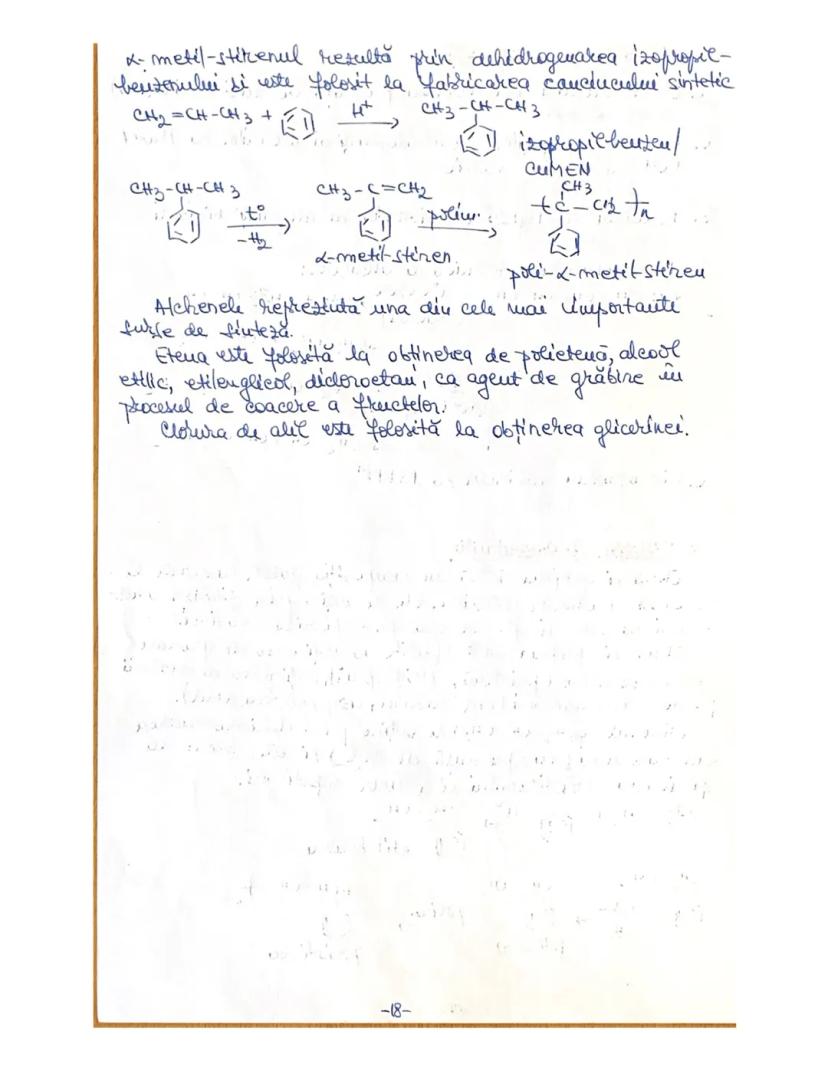 α-metil-stirenul rezultă prin dehidrogenarea izopropil-
benzenului și este folosit la fabricarea cauciucului sintetic
CH2=CH-CH3 + H+ → CH3-CH-CH3
izopropil-benzen/
CUMEN
CH3-CH-CH3 t° -H2 → CH3-C=CH2 polim. → CH3 -(C-CH2)-n
α-metil-stiren
poli-α-metil-stiren
Alchenele repreztută una din cele mai importante
surse de sinteză.
Etena este folosită la obținerea de polietenă, alcool
etilic, etilenglicol, dicloroetan, ca agent de grăbire în
procesul de coacere a fructelor.
Clorura de alil este folosită la obținerea glicerinei.
-18-